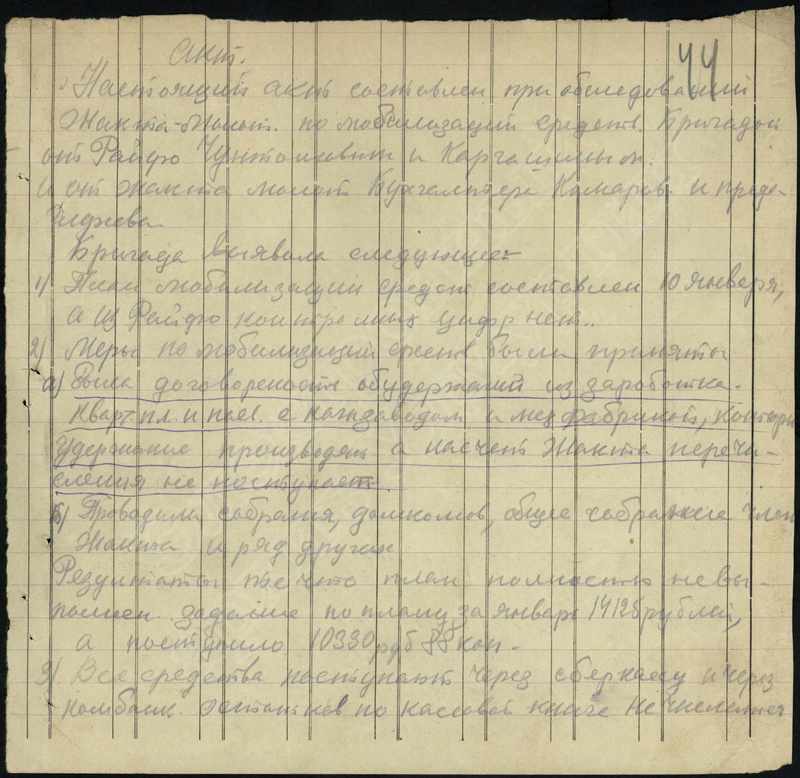 Акт. 44
Настоящий акт составлен при обследовании
Жакта-Молот. по мобилизации средств Бригадой
от Райфо и
и от жакта молот Бухгалтера Комаров и предс-

Бригада выявила следующее
1) План мобилизации средств составлен 10 января,
а из Райфо контрольных цифр нет..
2) Меры по мобилизации средств были приняты
а) Была договоренность обудержаний из заработка.
Кварт пл. и пае. с кожзаводом и мехфабрикой, которы
Удержание производят а насчет Жакта перечи-
сления не поступает.
б) Проводили собрания, домкомов, общее собрание член
Жакта и ряд других
Результаты что план полностью не вы-
полнен. задание по плану за январь 14125 рублей,
а поступило 10330 руб 88 коп.
3) Все средства поступают через сберкассу и через
комбанк. остатков по кассовой книге не числится